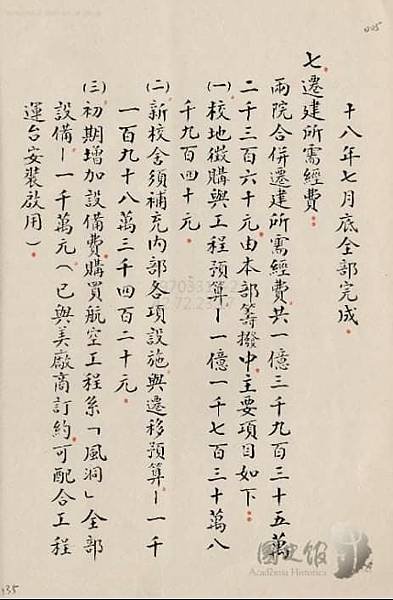 十八年七月底全部完成。
七、遷建所需經費：
兩院合併遷建所需經費共一億三千九百三十五萬
二千三百六十元，由本部籌撥，中主要項目如下：
㈠校地徵購與工程預算—一億一千七百三十萬八
千九百四十元。
㈡新校舍須補充內部各項設施與遷移預算—一千
一百九十八萬三千四百二十元。
㈢初期增加設備費，購買航空工程系「風洞」全部
設備—一千萬元（已與美廠商訂約，可配合工程
運台安裝啟用）。
國史館
Academia Historica